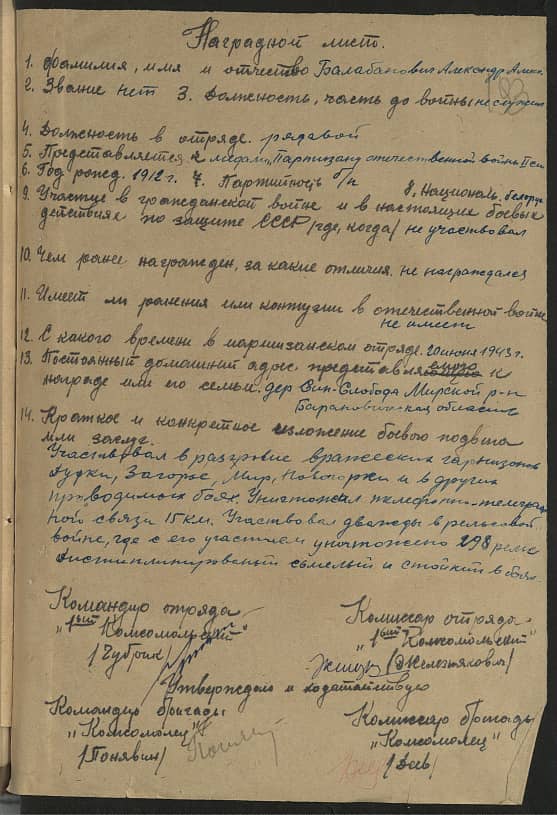 Наградной лист.
1. Фамилия, имя и отчество Балабанович Александр Алекс.
2. Звание нет 3. Должность, часть до войны не служил
4. Должность в отряде. рядавой
5. Представляется к медали "Партизану отечественной войны II ст.
6. Год рожд. 1912 г. 7. Партийность б/п 8. Националь. белорус
9. Участие в гражданской войне и в настоящих боевых
действиях по защите СССР /где, когда/ не участвовал
10. Чем ранее награжден, за какие отличия. не награждался
11. Имеет ли ранения или контузии в отечественной войне
не имеет
12. С какого времени в партизанском отряде. 20 июня 1943 г.
13. Постоянный домашний адрес представляемого к
награде или его семьи. дер Син-Слобода Мирской р-н
Барановичская область
14. Краткое и конкретное изложение боевого подвига
или заслуг.
Участвовал в разгроме вражеских гарнизонов
Загорье, Мир, и в других
проводимых боях. Уничтожал телефонно-телеграф
ной связи 15 км. Участвовал дважды в рельсовой
войне, где с его участием уничтожено 298 рельс
дисциплинирований смелый и стойкий в боях.
Командир отряда Комиссар отряда
"1ый Комсомольский" "1ый Комсомольский"
/Чубрик/ /Железнякович/
Утверждаю и ходатайствую
Командир бригады Комиссар бригады
"Комсомолец" "Комсомолец"
/Понявин/